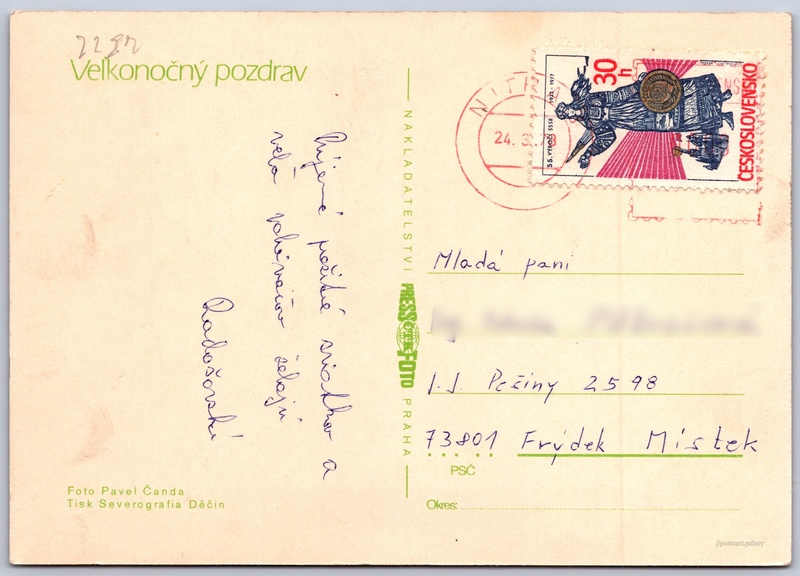 Veľkonočný pozdrav
Príjemné prežitie sviatkov a
veľa kúpačov želajú
Radošovskí
Foto Pavel Čanda
Tisk Severografia Děčín
NAKLADATELSTVÍ
PRESSFOTO
PRAHA
24. 3.
30 h
ČESKOSLOVENSKO
35. VÝROČÍ SSSR 1922-1977
Mladá pani
J. J. Pešiny 2598
73801 Frýdek Místek
PSČ
Okres: